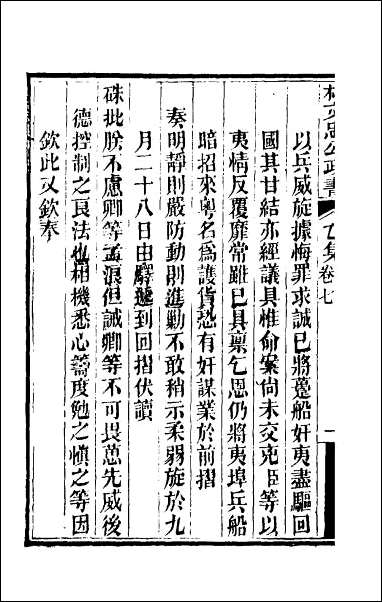 林文忠公政書 乙集卷七
以兵威旋據悔罪求誠已將躉船奸夷盡驅回
國其甘結亦經議具惟命案尚未交兇臣等以
夷情反覆靡常雖已具稟乞恩仍將夷埠兵船
暗招來粵名爲護貨恐有奸謀業於前摺
奏明靜則嚴防動則進勦不敢稍示柔弱旋於九
月二十八日由驛遞到回摺伏讀
硃批朕不慮卿等孟浪但誡卿等不可畏葸先威後
德控制之良法也相機悉心籌度勉之愼之等因
欽此又欽奉